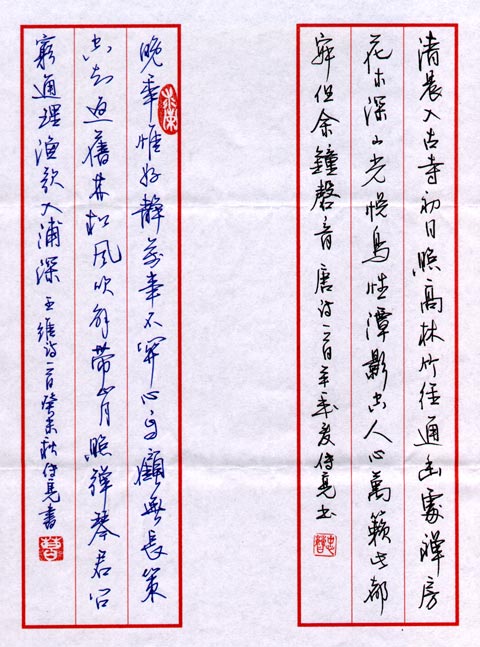 清晨入古寺初日照高林竹径通幽處禅房
花木深山光悦鸟性潭影空人心萬籁此都
寂但余鐘磬音 唐诗一首 夏传亮书
晚年惟好静万事不関心自顧無長策
空知返舊林松风吹解带山月照弹琴君问
窮通理渔歌入浦深 王维诗一首癸未秋传亮書